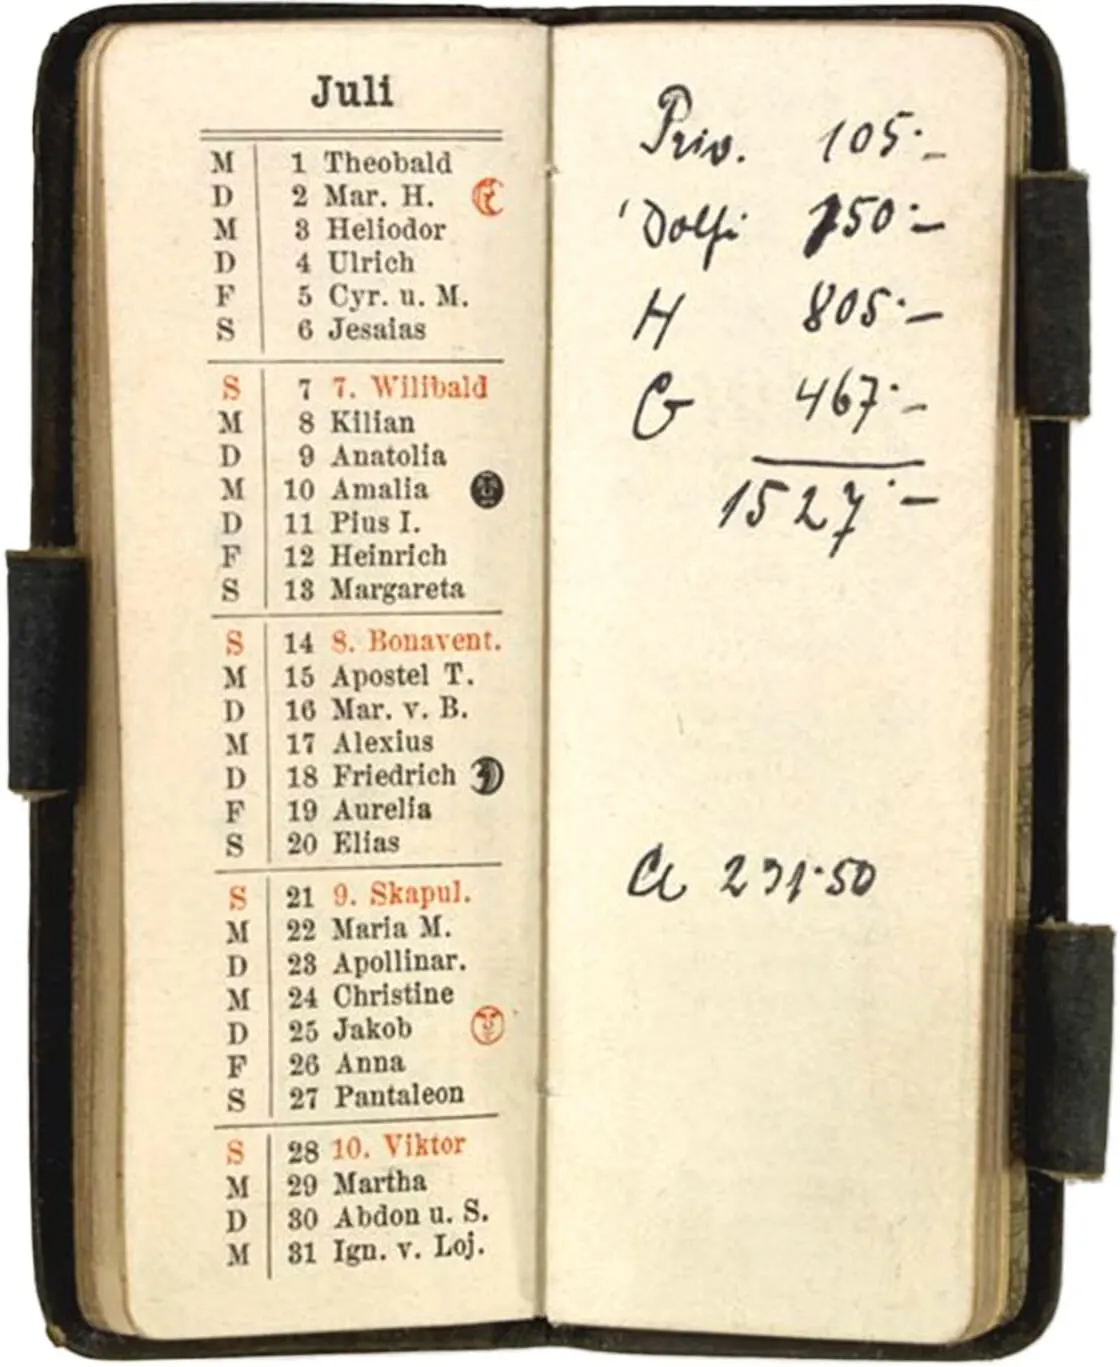 Juli
M 1 Theobald
D 2 Mar. H.
M 3 Heliodor
D 4 Ulrich
F 5 Cyr. u. M.
S 6 Jesaias
S 7 7. Wilibald
M 8 Kilian
D 9 Anatolia
M 10 Amalia
D 11 Pius I.
F 12 Heinrich
S 13 Margareta
S 14 8. Bonavent.
M 15 Apostel T.
D 16 Mar. v. B.
M 17 Alexius
D 18 Friedrich
F 19 Aurelia
S 20 Elias
S 21 9. Skapul.
M 22 Maria M.
D 23 Apollinar.
M 24 Christine
D 25 Jakob
F 26 Anna
S 27 Pantaleon
S 28 10. Viktor
M 29 Martha
D 30 Abdon u. S.
M 31 Ign. v. Loj.
Priv. 105·–
Dolfi 150·–
H 805·–
G 467·–
1527·–
231·50